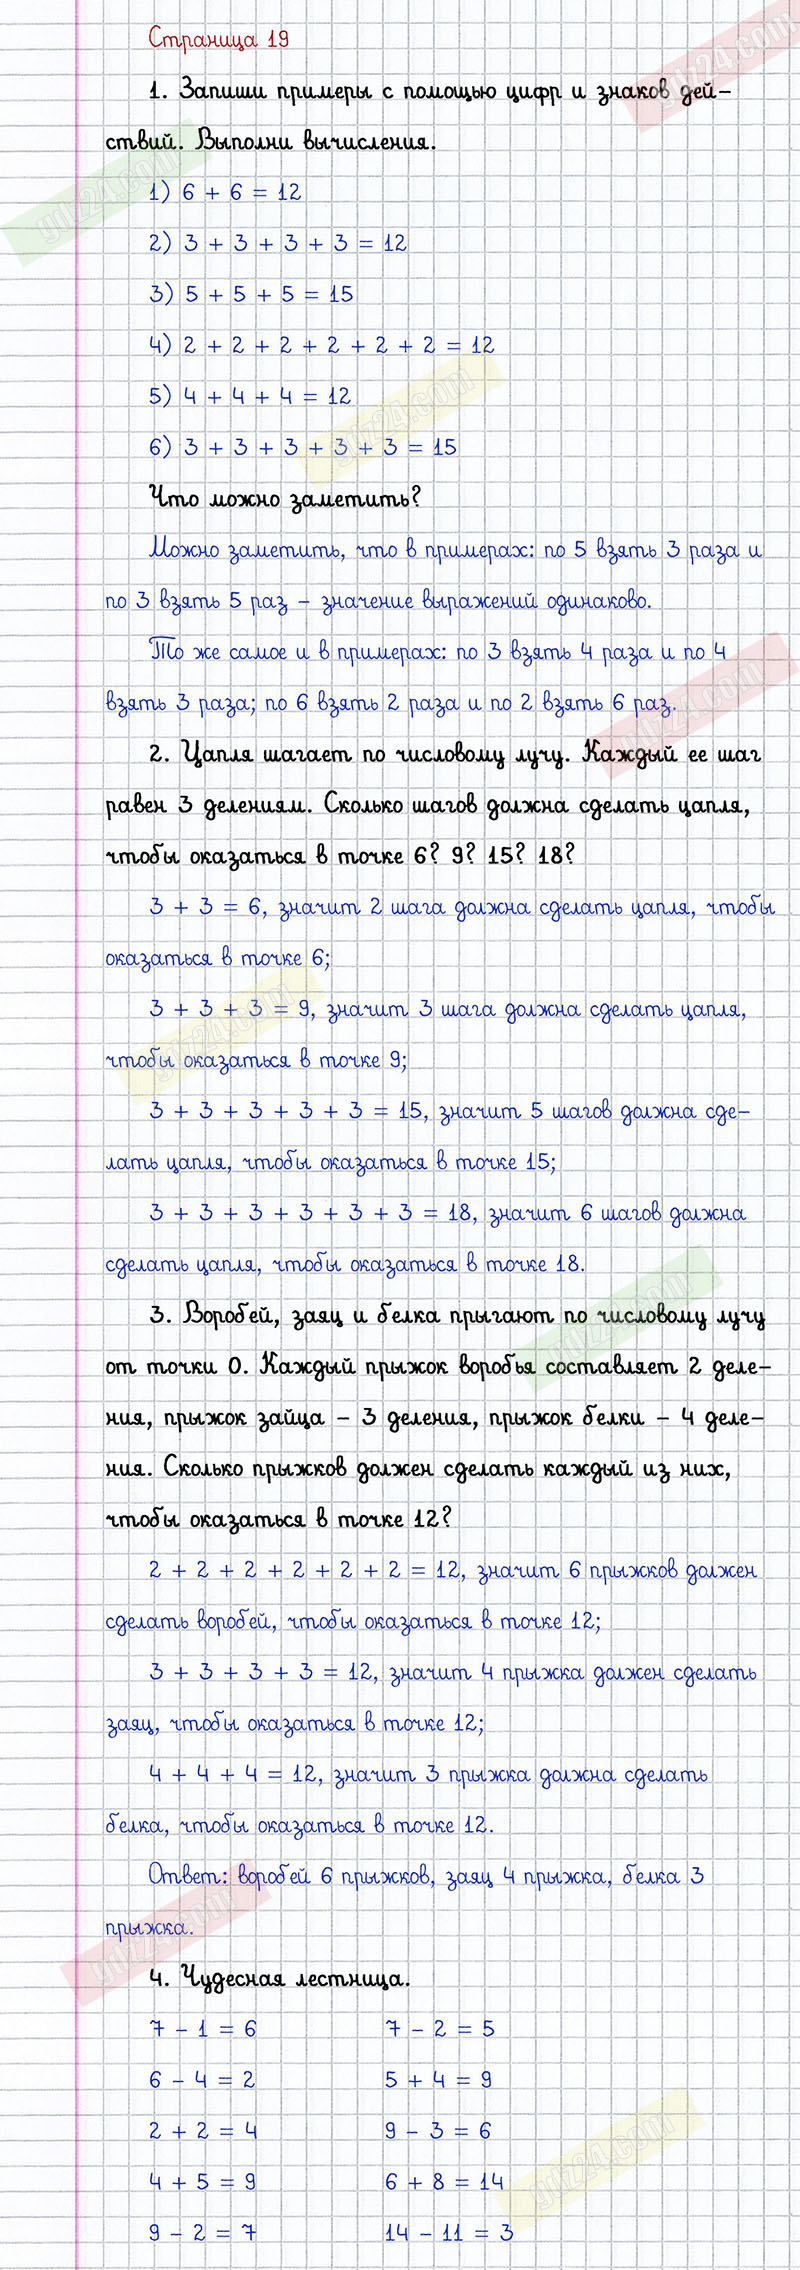 Страница 19
1. Запиши примеры с помощью цифр и знаков дей-
ствий. Выполни вычисления.
1) 6 + 6 = 12
2) 3 + 3 + 3 + 3 = 12
3) 5 + 5 + 5 = 15
4) 2 + 2 + 2 + 2 + 2 + 2 = 12
5) 4 + 4 + 4 = 12
6) 3 + 3 + 3 + 3 + 3 = 15
Что можно заметить?
Можно заметить, что в примерах: по 5 взять 3 раза и
по 3 взять 5 раз – значение выражений одинаково.
То же самое и в примерах: по 3 взять 4 раза и по 4
взять 3 раза; по 6 взять 2 раза и по 2 взять 6 раз.
2. Цапля шагает по числовому лучу. Каждый ее шаг
равен 3 делениям. Сколько шагов должна сделать цапля,
чтобы оказаться в точке 6? 9? 15? 18?
3 + 3 = 6, значит 2 шага должна сделать цапля, чтобы
оказаться в точке 6;
3 + 3 + 3 = 9, значит 3 шага должна сделать цапля,
чтобы оказаться в точке 9;
3 + 3 + 3 + 3 + 3 = 15, значит 5 шагов должна сде-
лать цапля, чтобы оказаться в точке 15;
3 + 3 + 3 + 3 + 3 + 3 = 18, значит 6 шагов должна
сделать цапля, чтобы оказаться в точке 18.
3. Воробей, заяц и белка прыгают по числовому лучу
от точки 0. Каждый прыжок воробья составляет 2 деле-
ния, прыжок зайца – 3 деления, прыжок белки – 4 деле-
ния. Сколько прыжков должен сделать каждый из них,
чтобы оказаться в точке 12?
2 + 2 + 2 + 2 + 2 + 2 = 12, значит 6 прыжков должен
сделать воробей, чтобы оказаться в точке 12;
3 + 3 + 3 + 3 = 12, значит 4 прыжка должен сделать
заяц, чтобы оказаться в точке 12;
4 + 4 + 4 = 12, значит 3 прыжка должна сделать
белка, чтобы оказаться в точке 12.
Ответ: воробей 6 прыжков, заяц 4 прыжка, белка 3
прыжка.
4. Чудесная лестница.
7 – 1 = 6 7 – 2 = 5
6 – 4 = 2 5 + 4 = 9
2 + 2 = 4 9 – 3 = 6
4 + 5 = 9 6 + 8 = 14
9 – 2 = 7 14 – 11 = 3
gdz24.com
gdz24.com
gdz24.com
gdz24.com
gdz24.com
gdz24.com
gdz24.com
gdz24.com